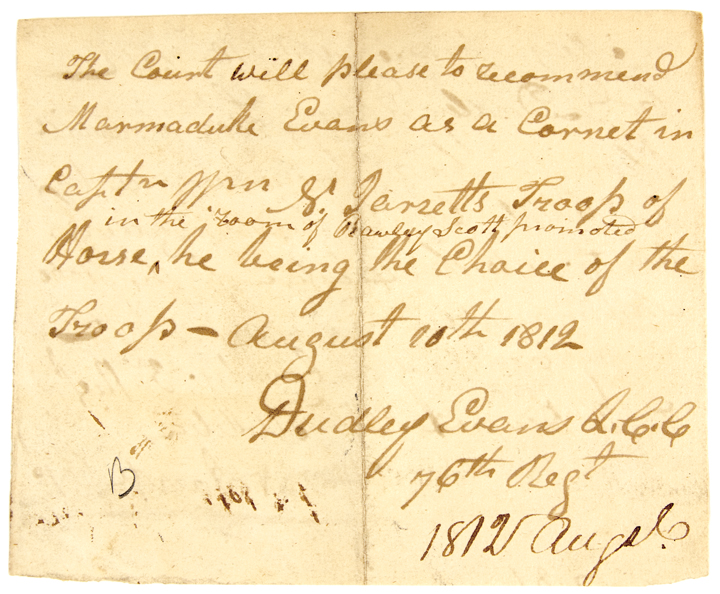 The Court will please to recommend
Marmaduke Evans as a Cornet in
Captn Wm N. Jarretts Troop of
in the room of Rawley Scott promoted
Horse ^ he being the Choice of the
Troop – August 10th 1812
Dudley Evans L.C.C
76th Regt
1812 Augst
B